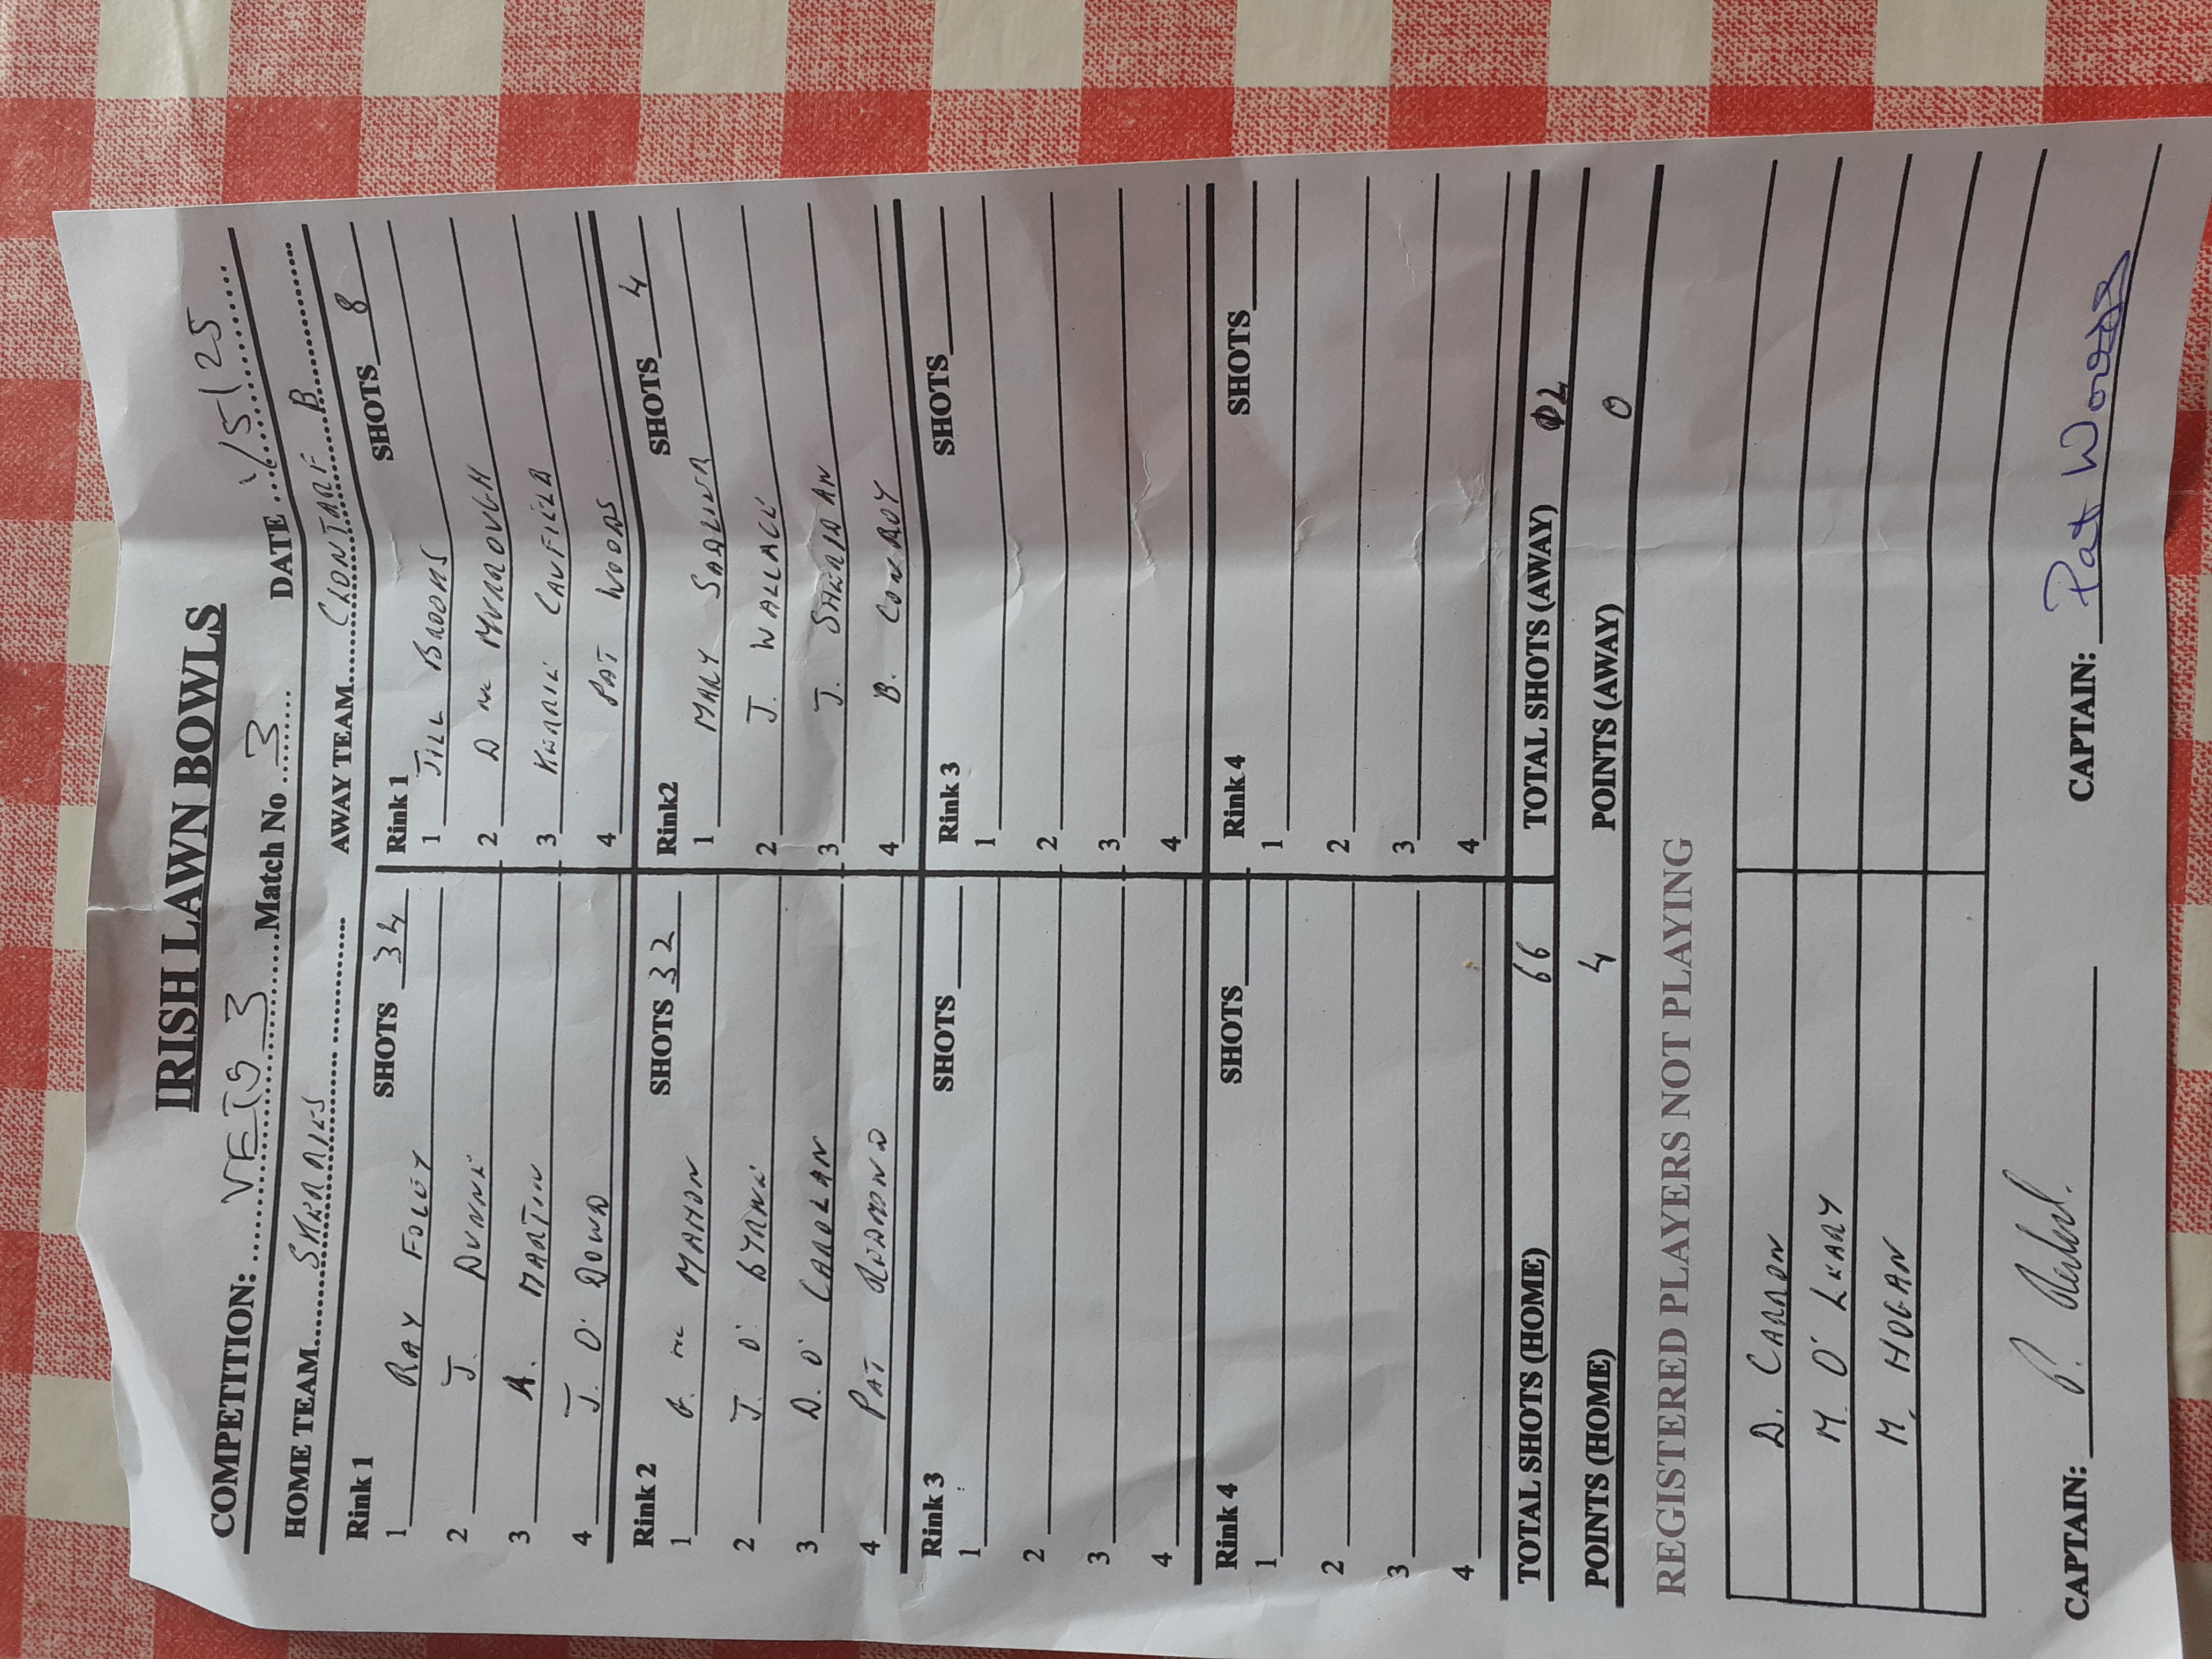 IRISH LAWN BOWLS
COMPETITION: VETS 3 Match No 3 DATE 1/5/25
HOME TEAM SKERRIES AWAY TEAM CLONTARF B
Rink 1 SHOTS 34 Rink 1 SHOTS 8
1 RAY FOLEY 1 JILL BROOMS
2 J. DUNNE 2 D Mc MURROUGH
3 A. MARTIN 3 KERRIE CAUFIELD
4 J. O' DOWD 4 PAT WOODS
Rink 2 SHOTS 32 Rink2 SHOTS 4
1 Mc MAHON 1 MARY
2 J. O' BYRNE 2 J. WALLACE
3 D. O' CAROLAN 3 J. SHERIDAN
4 PAT REDMOND 4 B. CONROY
Rink 3 SHOTS Rink 3 SHOTS
1 1
2 2
3 3
4 4
Rink 4 SHOTS Rink 4 SHOTS
1 1
2 2
3 3
4 4
TOTAL SHOTS (HOME) 66 TOTAL SHOTS (AWAY) 12
POINTS (HOME) 4 POINTS (AWAY) 0
REGISTERED PLAYERS NOT PLAYING
D. CARRON
M. O' LEARY
M. HOGAN
CAPTAIN: P. CAPTAIN: Pat Woods